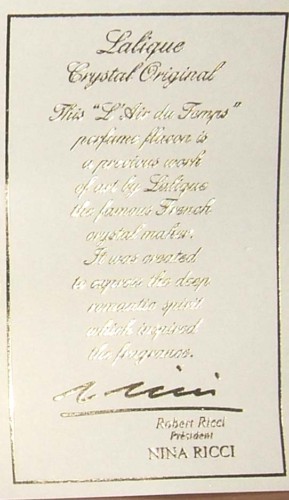 Lalique
Crystal Original
This "L'Air du Temps"
perfume flacon is
a precious work
of art by Lalique
the famous French
crystal maker.
It was created
to express the deep
romantic spirit
which inspired
the fragrance.
R. Ricci
Robert Ricci
Président
NINA RICCI